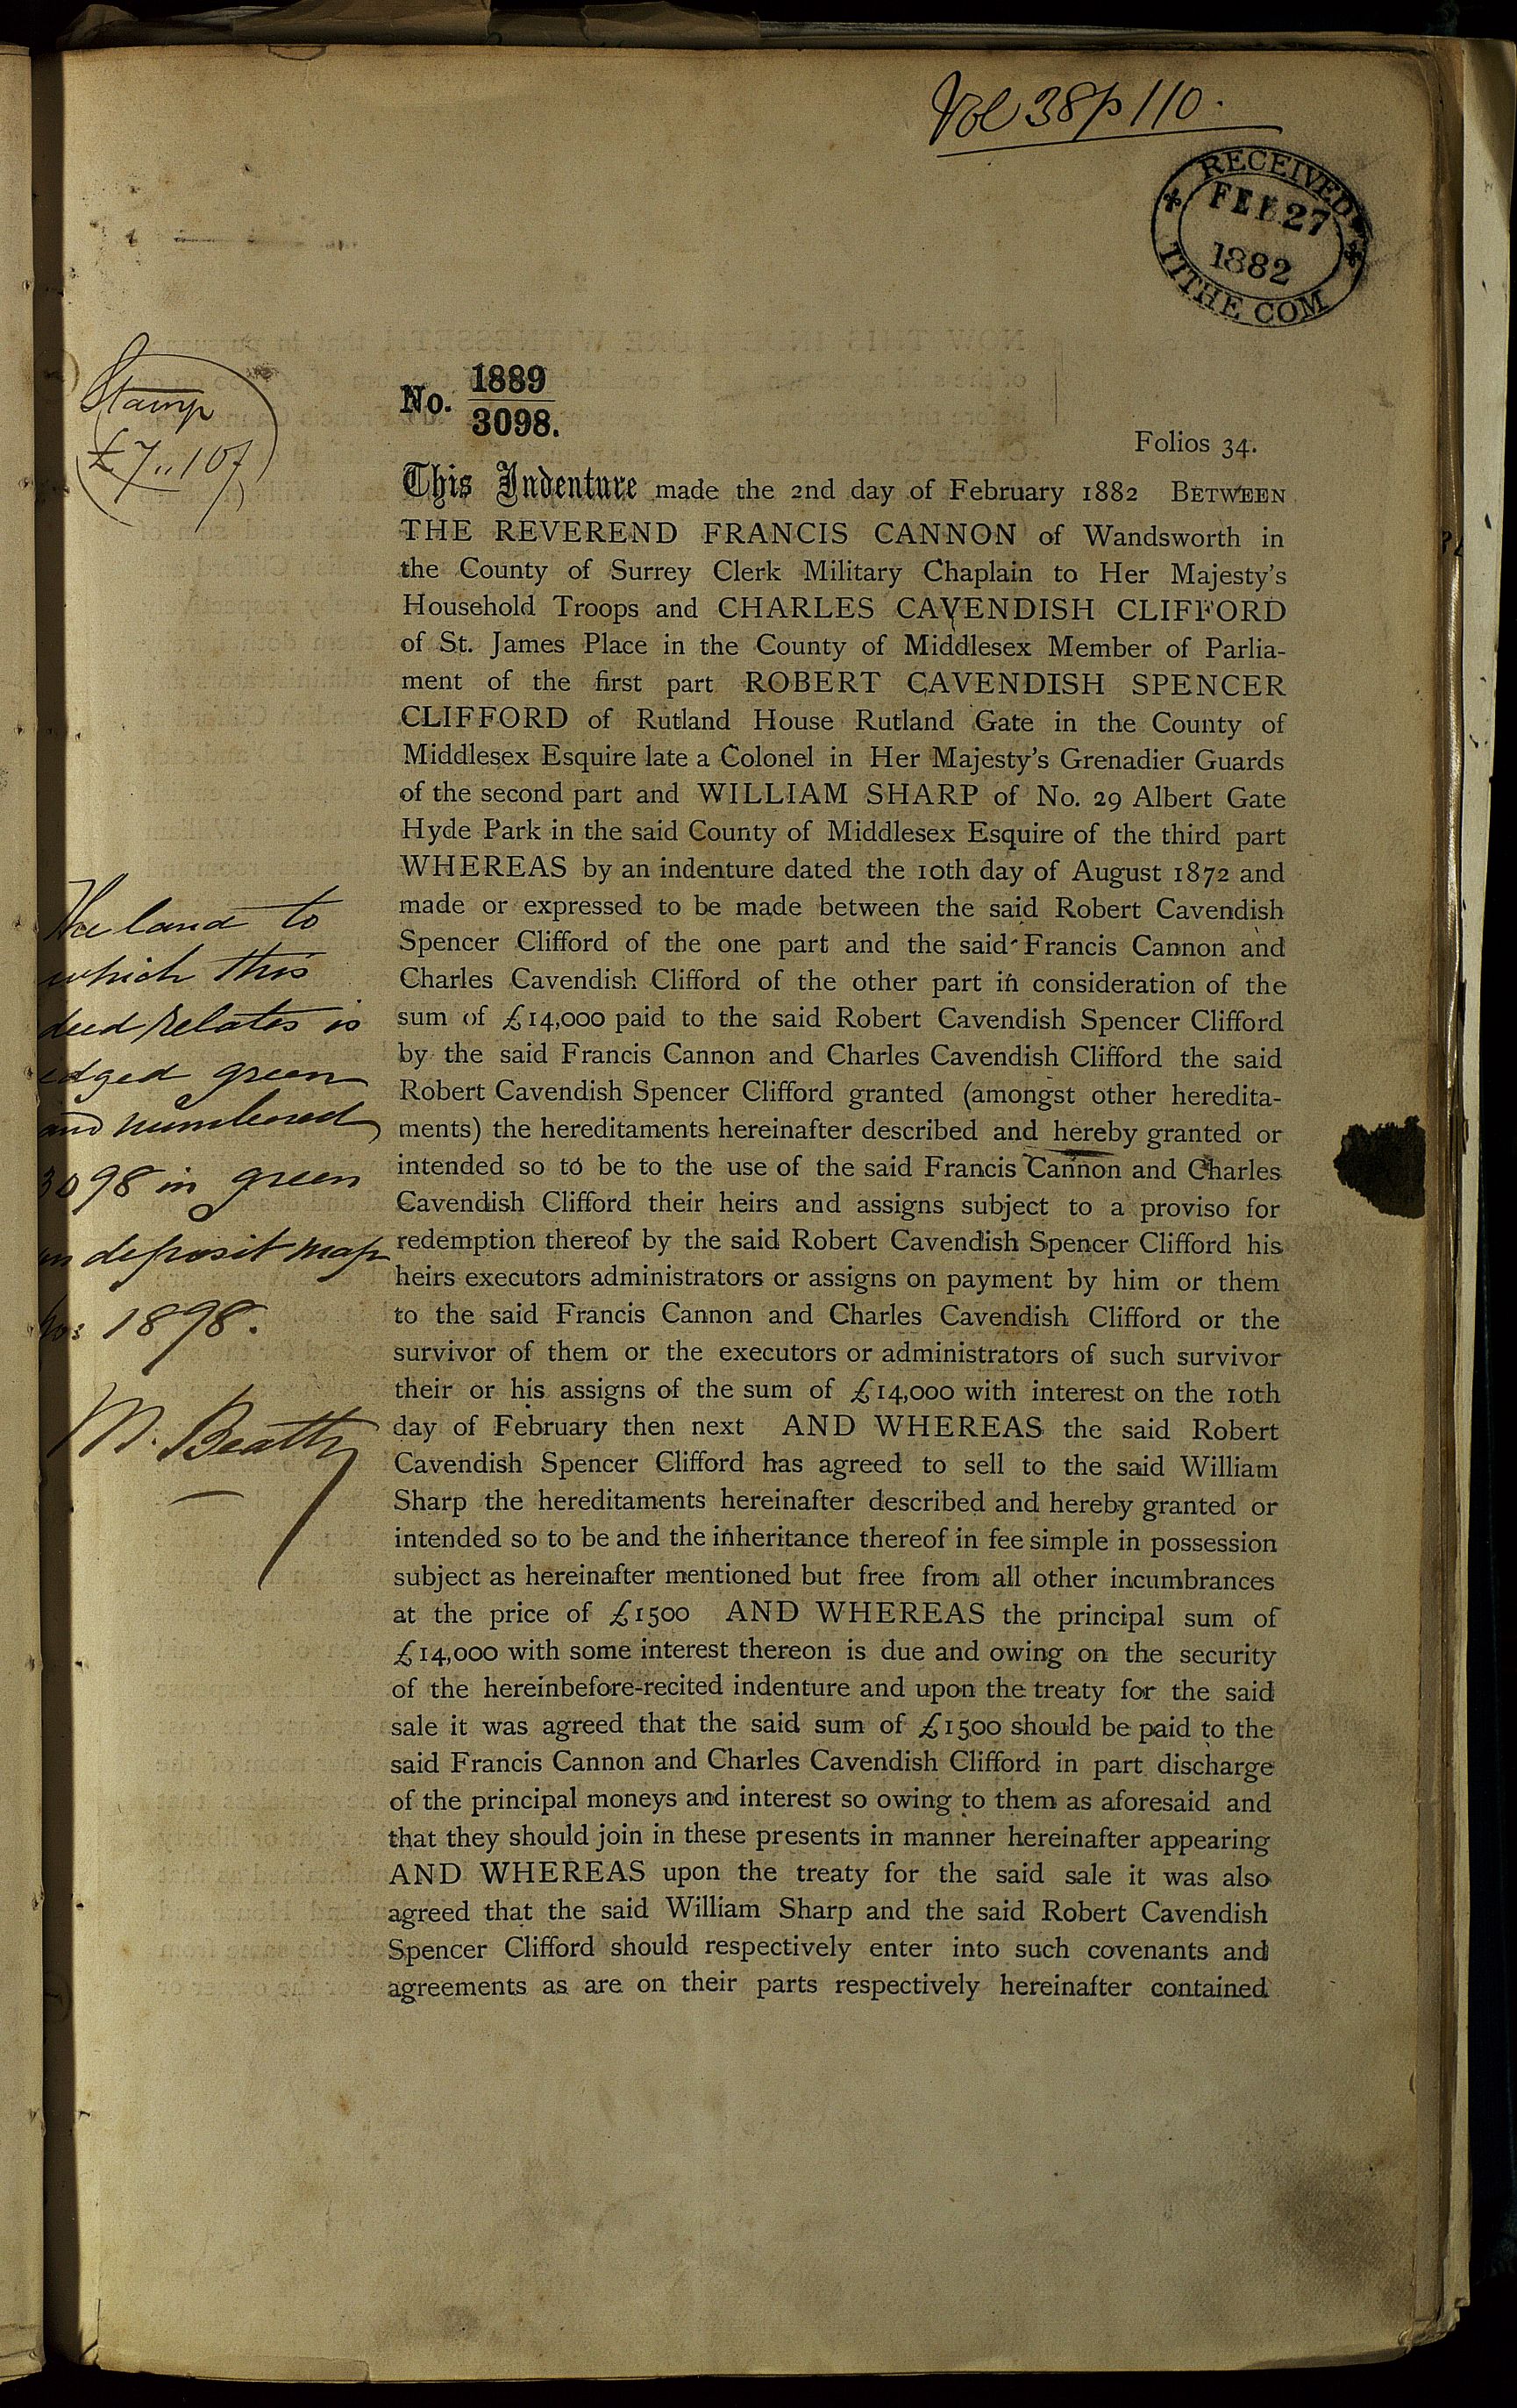 Vol 38 p 110.
RECEIVED
FEB 27
1882
TITHE COM
Stamp
£7,,10/
No. 1889
3098.
Folios 34.
This Indenture made the 2nd day of February 1882 BETWEEN
THE REVEREND FRANCIS CANNON of Wandsworth in
the County of Surrey Clerk Military Chaplain to Her Majesty's
Household Troops and CHARLES CAVENDISH CLIFFORD
of St. James Place in the County of Middlesex Member of Parlia-
ment of the first part ROBERT CAVENDISH SPENCER
CLIFFORD of Rutland House Rutland Gate in the County of
Middlesex Esquire late a Colonel in Her Majesty's Grenadier Guards
of the second part and WILLIAM SHARP of No. 29 Albert Gate
Hyde Park in the said County of Middlesex Esquire of the third part
WHEREAS by an indenture dated the 10th day of August 1872 and
made or expressed to be made between the said Robert Cavendish
Spencer Clifford of the one part and the said Francis Cannon and
Charles Cavendish Clifford of the other part in consideration of the
sum of £14,000 paid to the said Robert Cavendish Spencer Clifford
by the said Francis Cannon and Charles Cavendish Clifford the said
Robert Cavendish Spencer Clifford granted (amongst other heredita-
ments) the hereditaments hereinafter described and hereby granted or
intended so to be to the use of the said Francis Cannon and Charles
Cavendish Clifford their heirs and assigns subject to a proviso for
redemption thereof by the said Robert Cavendish Spencer Clifford his
heirs executors administrators or assigns on payment by him or them
to the said Francis Cannon and Charles Cavendish Clifford or the
survivor of them or the executors or administrators of such survivor
their or his assigns of the sum of £14,000 with interest on the 10th
day of February then next AND WHEREAS the said Robert
Cavendish Spencer Clifford has agreed to sell to the said William
Sharp the hereditaments hereinafter described and hereby granted or
intended so to be and the inheritance thereof in fee simple in possession
subject as hereinafter mentioned but free from all other incumbrances
at the price of £1500 AND WHEREAS the principal sum of
£14,000 with some interest thereon is due and owing on the security
of the hereinbefore-recited indenture and upon the treaty for the said
sale it was agreed that the said sum of £1500 should be paid to the
said Francis Cannon and Charles Cavendish Clifford in part discharge
of the principal moneys and interest so owing to them as aforesaid and
that they should join in these presents in manner hereinafter appearing
AND WHEREAS upon the treaty for the said sale it was also
agreed that the said William Sharp and the said Robert Cavendish
Spencer Clifford should respectively enter into such covenants and
agreements as are on their parts respectively hereinafter contained
The land to
which this
deed relates is
edged green
and numbered
3098 in green
on deposit map
No: 1898.
M. Beatty